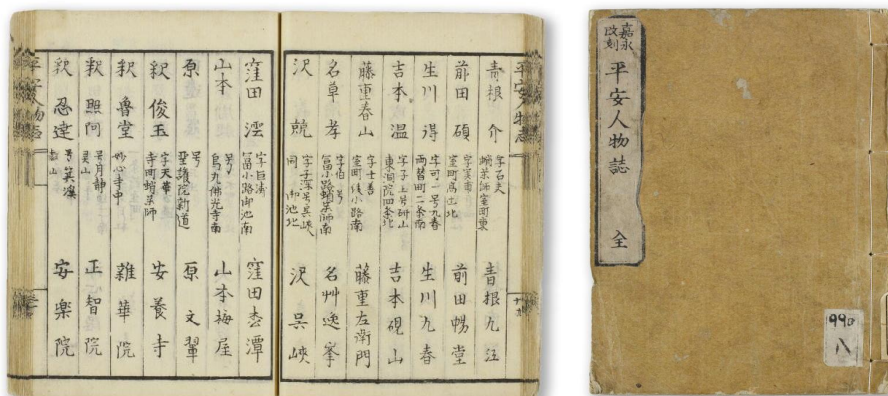 平安人物志
青根介
字石夫
蛸薬師室町東
青根九江
前田碩
室町高辻北
前田暢堂
生川得
字可一号九春
両替町二条南
生川九春
吉本温
字子玉号研山
東洞院四条北
吉本硯山
藤重春山
字士善
室町綾小路南
藤重左衛門
名草孝
字伯 号
富小路蛸薬師南
名艸逸峯
沢兢
字子深号呉峡
同 御池北
沢呉峡
窪田澐
字巨濤
富小路御池南
窪田雪潭
山本
号
烏丸佛光寺南
山本梅屋
原
号
聖護院新道
原文輩
釈俊玉
字天華
寺町蛸薬師
安養寺
釈魯堂
妙心寺中
雑華院
釈煕阿
号月静
霊山
正智院
釈忍達
号箕澳
安楽院
平安人物志
嘉永
改刻
平安人物誌 全
990
八